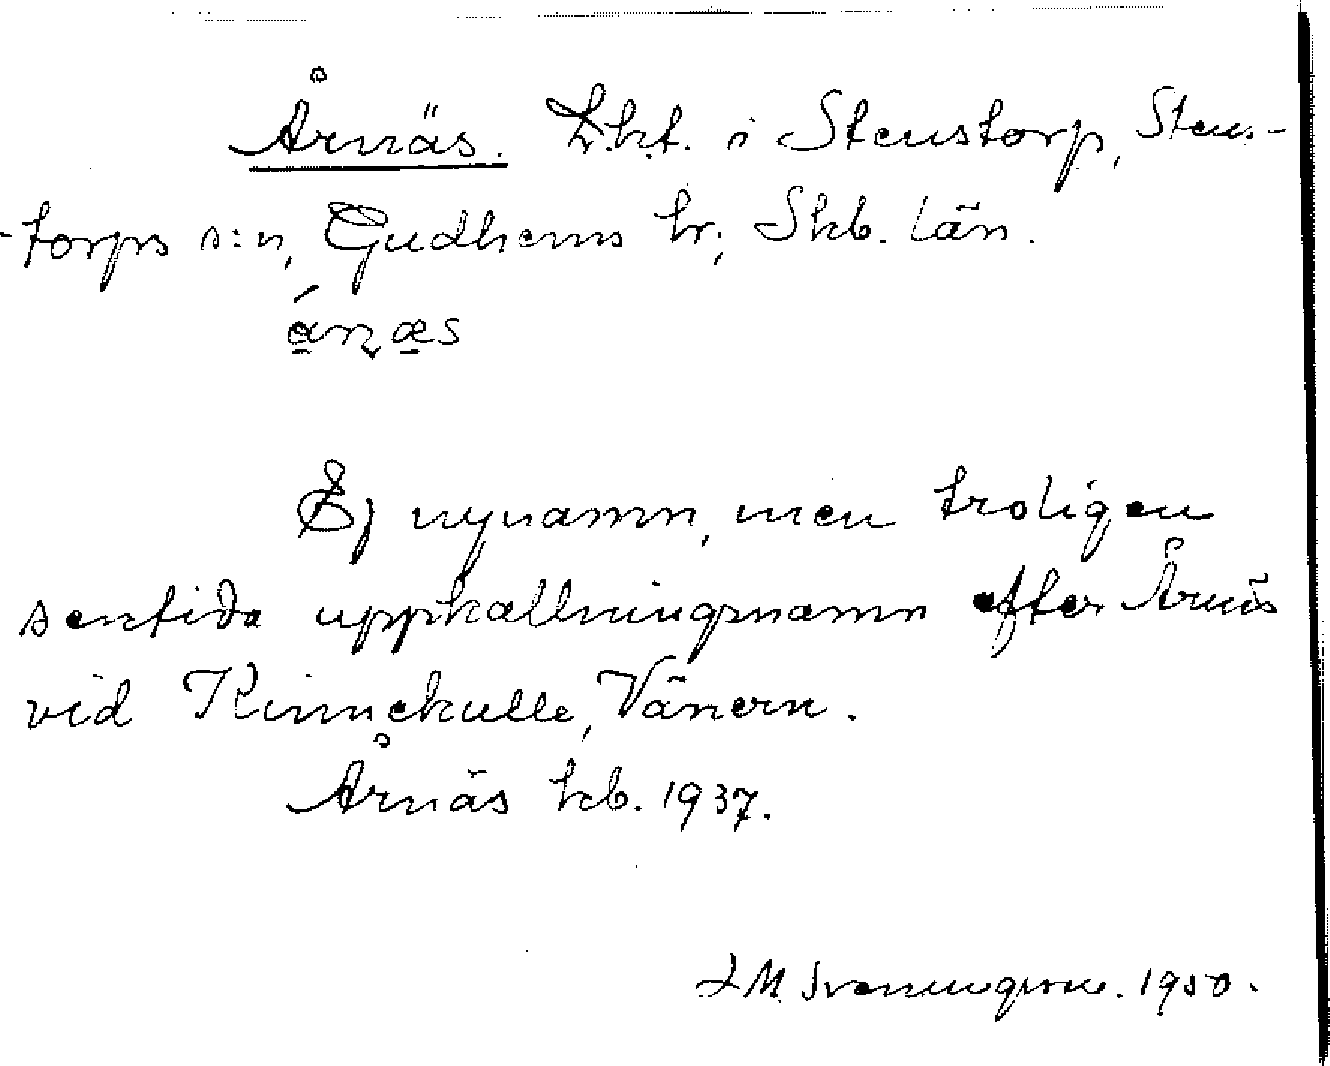 Årnäs. Lht. i Stenstorp, Stens-
-torps s:n, Gudhems hr; Skb. län.
Ej nynamn, men troligen
sentida uppkallningsnamn efter Årnäs
vid Kinnekulle, Vänern.
Årnäs kb. 1937.
1950.